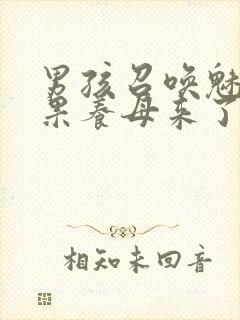 男孩召唤魅
果养母来了
相知未回音